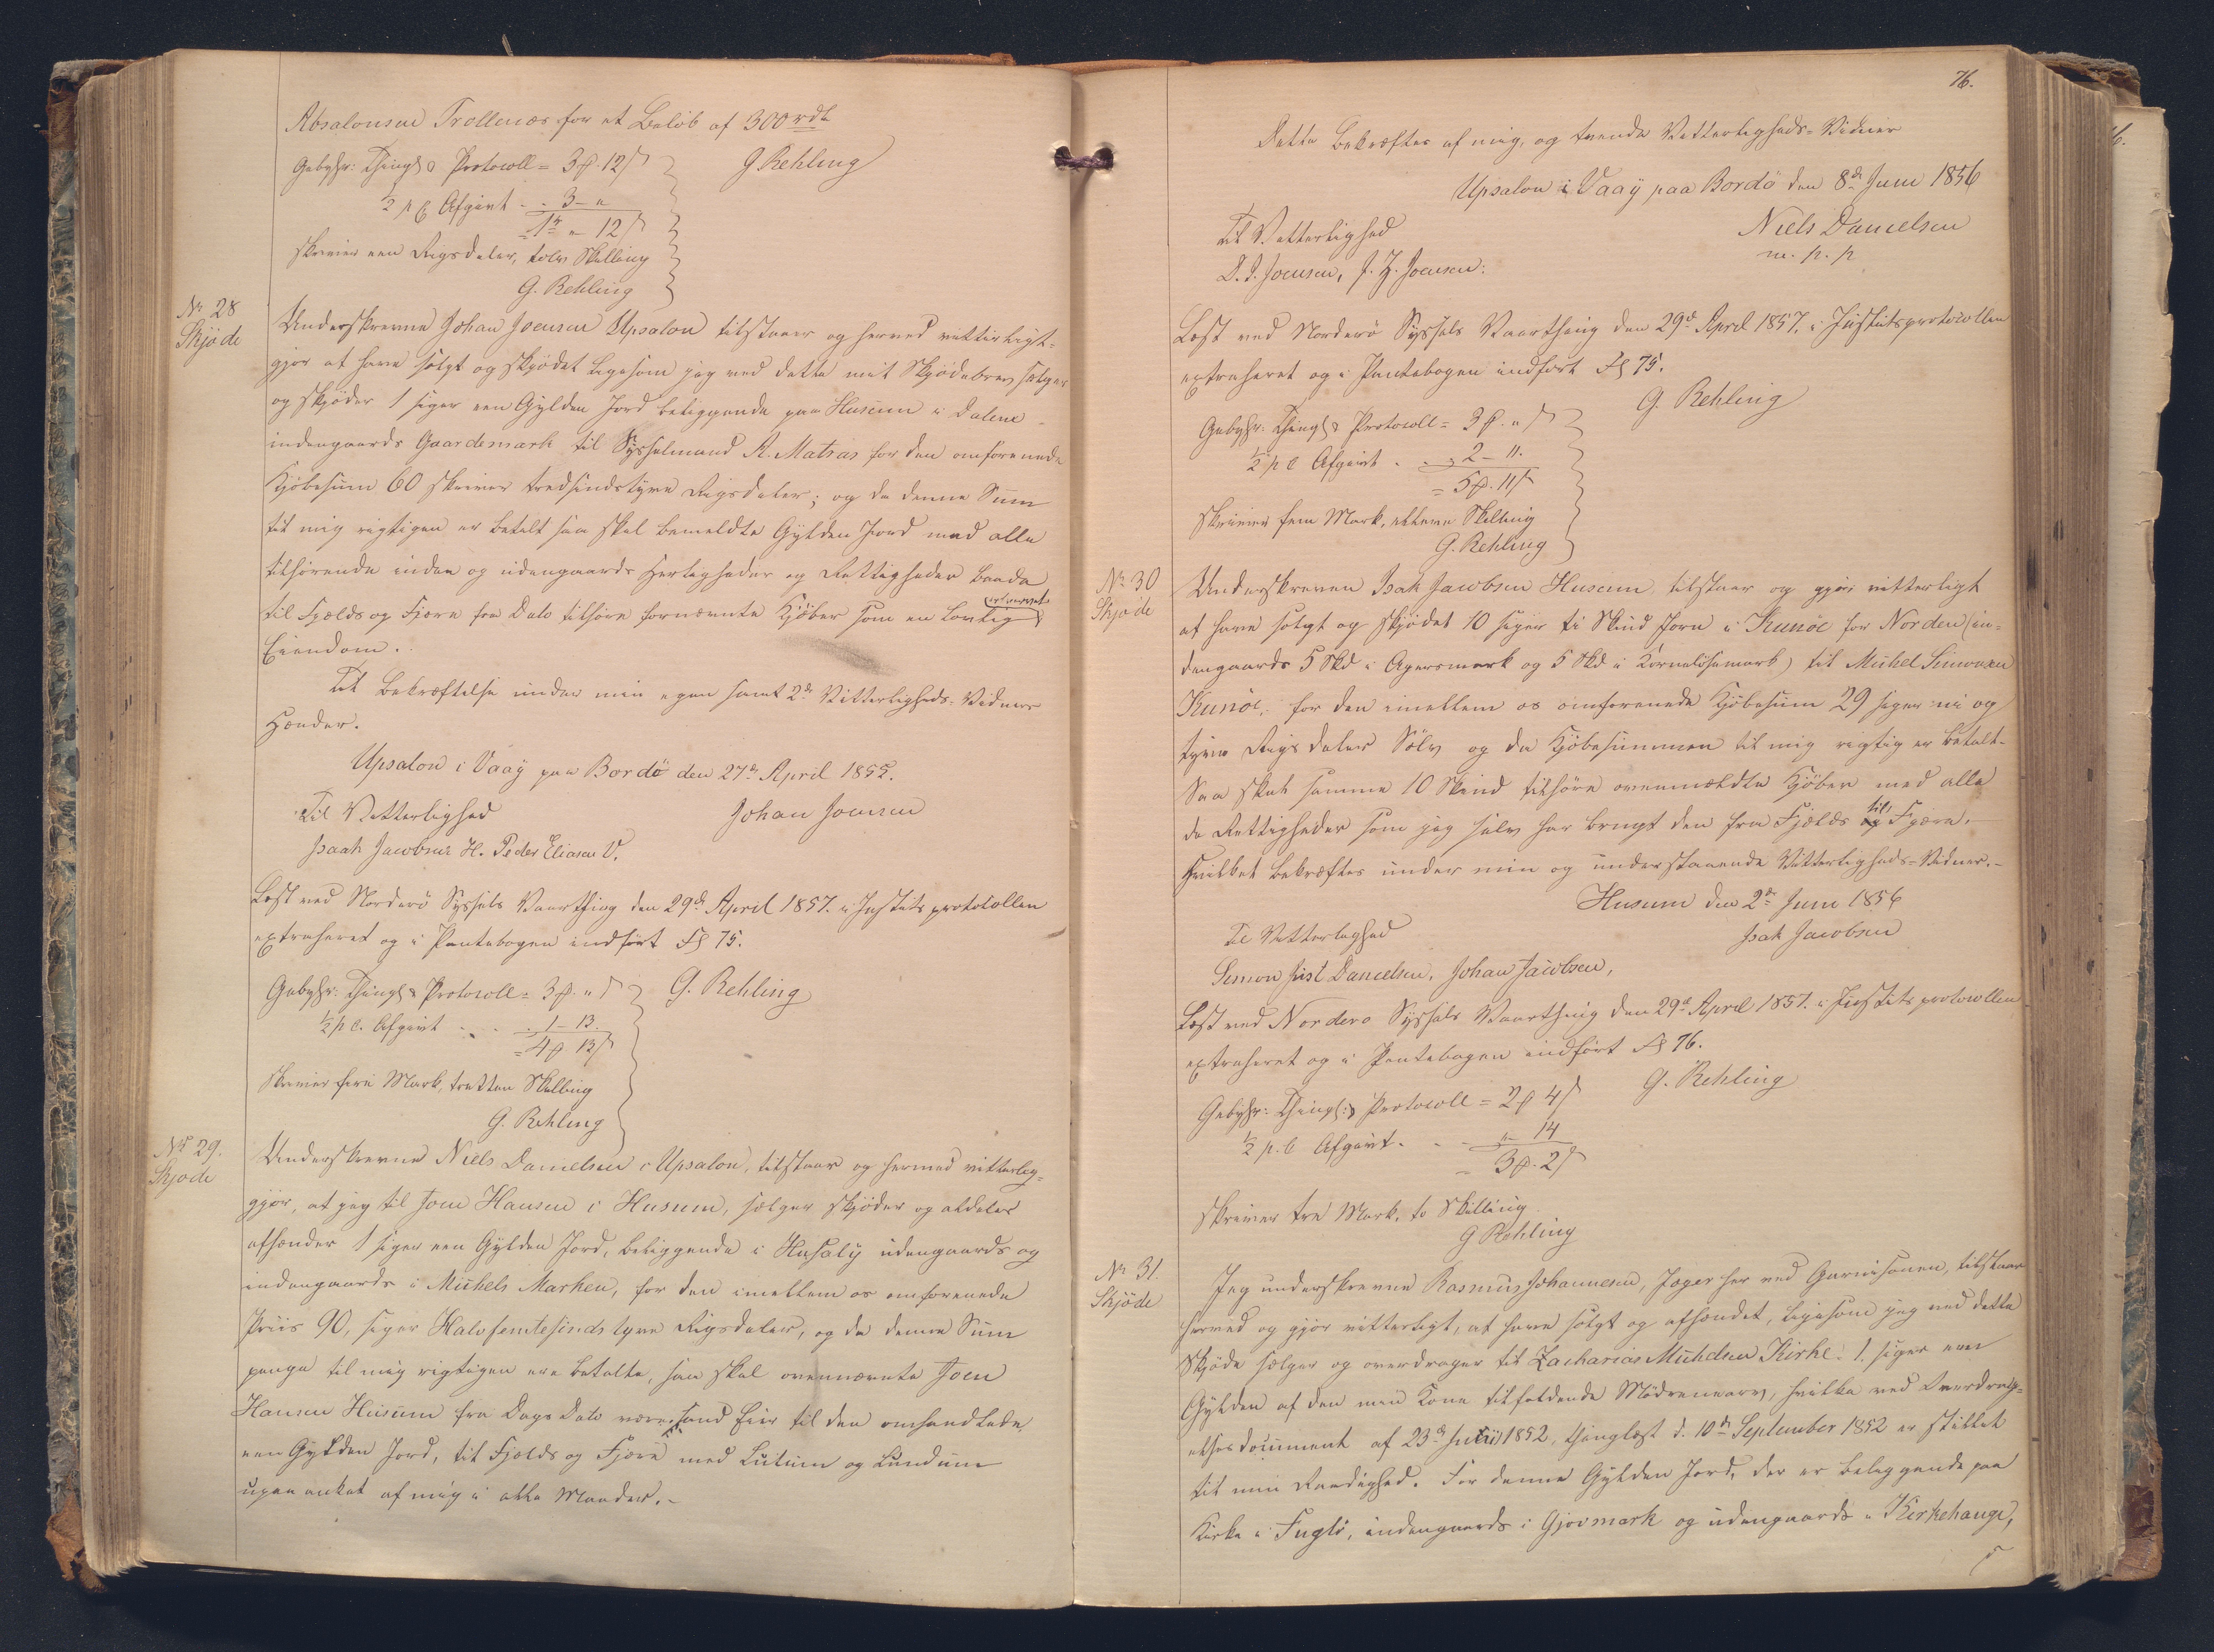 Absalonsen Trollenæs for et Beløb af 300 rdl
G Rehling
Gebyhr: Thingl & Protocoll = 3 ₻. 12 ẞ
½ p C Afgivt - - 3 - "
= 1 rd " - 12 ẞ
skriver een Rigsdaler, tolv Skilling
G. Rehling
No 28
Skjöde
Underskrevne Johan Joensen Upsalon tilstaaer og herved vitterligt-
gjør at have solgt og skjødet ligesom jeg ved dette mit Skjødebrev sælger
og skjøder 1 siger een Gylden Jord beliggende paa Husum i Dalene
indengaards Gaardemark til Sysselmand A. Matras for den omforenede
Kjøbesum 60 skriver tredsindstyve Rigsdaler; og da denne Sum
til mig rigtigen er betalt saa skal bemeldte Gylden Jord med alle
tilhørende inden og udengaards Herligheder og Rettigheder baade
til Fjelds og Fjære fra Dato tilhøre fornævnte Kjøber som en lovlig erhvervet
Eiendom.
Til Bekræftelse under min egen samt 2de Vitterligheds-Vidners
Hænder.
Upsalon i Vaaÿ paa Bordö den 27de April 1855.
Til Vitterlighed
Johan Joensen
Isaak Jacobsen H. Peder Eliasen V.
Læst ved Norderø Syssels Vaarthing den 29de April 1857. i Justitsprotocollen
extraheret og i Pantebogen indført Fol 75.
G. Rehling
Gebyhr: Thingl & Protocoll = 3 ₻. " ẞ
½ p C. Afgivt - - - 1 - 13.
= 4 ₻ 13 ẞ
skriver fire Mark, tretten Skilling
G. Rehling
No 29.
Skjøde
Underskrevne Niels Danielsen i Upsalon, tilstaar og hermed vitterlig-
gjør, at jeg til Joen Hansen i Husum, sælger skjøder og aldeles
afhænder 1 siger een Gylden Jord, beliggende i Husalÿ udengaards og
indengaards i Mickels Marken, for den imellem os omforenede
Priis 90, siger Halvfemtesindstyve Rigsdaler, og da denne Sum
penge til mig rigtigen ere betalte, saa skal ovennævnte Joen
Hansen Husum fra Dags Dato være sand Eier til den omhandlede
een Gylden Jord, til Fjelds og Fjære med Lutum og Lundum
upaaanket af mig i alle Maader.-
76.
Dette bekræftes af mig, og tvende Vitterligheds-Vidner
Upsalon i Vaaÿ paa Bordö den 8de Juni 1856
Til Vitterlighed
Niels Danielsen
D. J. Joensen, J. H. Joensen:
m. p. p
Læst ved Norderø Syssels Vaarthing den 29de April 1857. i Justitsprotocollen
extraheret og i Pantebogen indført Fol 75.
G. Rehling
Gebyhr: Thingl & Protocoll = 3 ₻. " ẞ
½ p C Afgivt - - 2 - 11.
= 5 ₻. 11 ẞ
skriver fem Mark, elleve Skilling
G. Rehling
No 30
Skjøde
Underskreven Isak Jacobsen Husum, tilstaar og gjør vitterligt
at have solgt og skjødet 10 siger ti Skind Jord i Kunøe for Norden (in-
dengaards 5 Skd i Agersmark og 5 Skd i Kornelösemark) til Mickel Simonsen
Kunöe, for den imellem os omforenede Kjøbesum 29 siger ni og
tyve Rigsdaler Sølv og da Kjøbesummen til mig rigtig er betalt.
Saa skal samme 10 Skind tilhøre ovenmældte Kjøber med alle
de Rettigheder som jeg selv har brugt den fra Fjelds til Fjære.-
Hvilket bekræftes under min og understaaende Vitterligheds-Vidner.-
Husum den 2de Juni 1856
Til Vitterlighed
Isak Jacobsen
Simon Just Danielsen, Johan Jacobsen,
Læst ved Norderø Syssels Vaarthing den 29de April 1857. i Justitsprotocollen
extraheret og i Pantebogen indført Fol 76.
G. Rehling
Gebyhr: Thingl: & Protocoll = 2 ₻ 4 ẞ
½ p. C Afgivt. - - " - 14
= 3 ₻. 2 ẞ
skriver tre Mark, to Skilling
G Rehling
No 31.
Skjöde
Jeg underskrevne Rasmus Johannesen, Jæger her ved Garnisonen, tilstaar
herved og gjør vitterligt, at have solgt og afhændet, ligesom jeg ved dette
Skjøde sælger og overdrager til Zacharias Michelsen Kirke: 1. siger een
Gylden af den min Kone tilfaldende Mödrenearv, hvilke ved Overdrag-
elsesdocument af 23de Julii 1852, thinglæst d. 10de September 1852 er stillet
til min Raadighed. For denne Gylden Jord, der er beliggende paa
Kirke i Fuglö, indengaards i Gjovmark og udengaards i Kirkehauge,